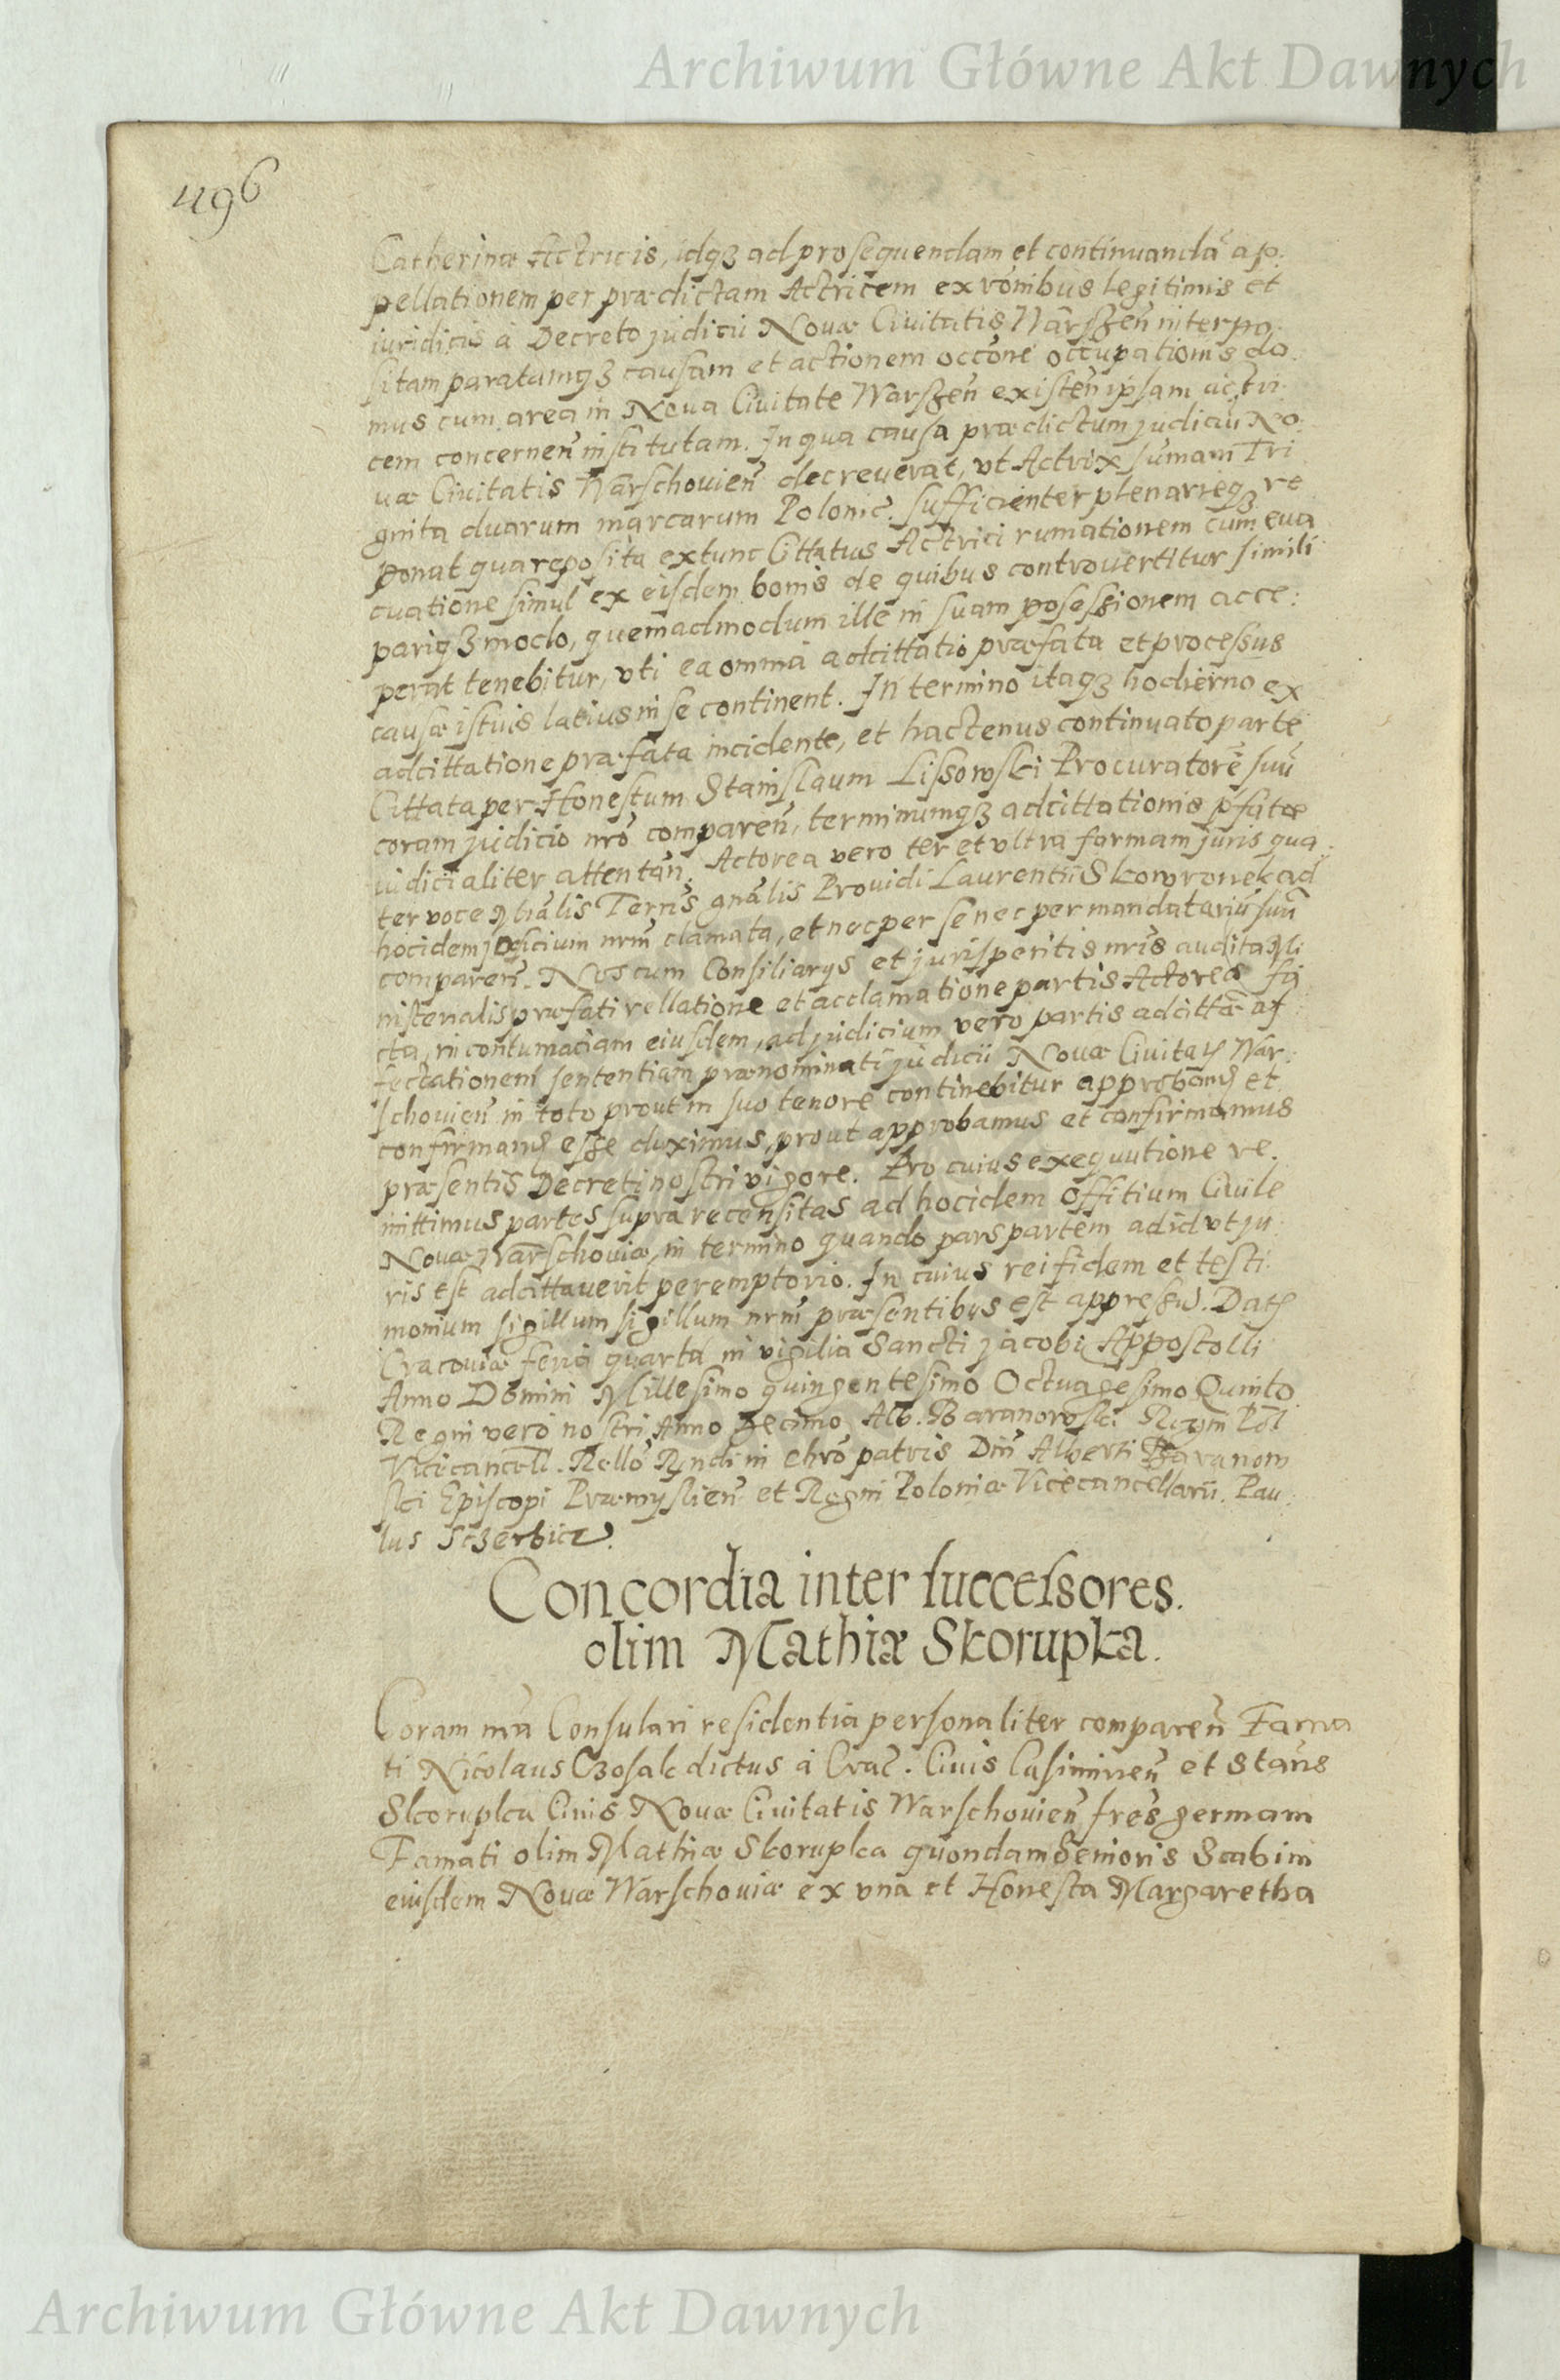 Archiwum Główne Akt Dawnych
496
Catherinæ Actricis, idqꝫ ad prosequendam et continuandā ap:
pellationem per prædictam Actricem ex rōnibus legitimis et
iuridicis à Decreto judicii Nouæ Ciuitatis Warszen̄ interpo:
sitam paratamqꝫ causam et actionem occōne occupationis do:
mus cum area in Noua Ciuitate Warszen̄ existen̄ ipsam actri:
cem concernen̄ institutam. In qua causa prædictum judiciū No:
uæ Ciuitatis Warschouien̄ decreverat, vt Actrix sūmam Tri
ginta duarum marcarum Polonic̄. sufficienter plenarieqꝫ re
ponat qua reposita extunc Cittatus Actrici rumationem cum eua
cuatione simul ex eisdem bonis de quibus controuertitur simili
pariqꝫ modo, quemadmodum ille in suam posessionem acce:
perat tenebitur, vti ea omnia adcittatio præfata et processus
causæ istuis latius in se continent. In termino itaqꝫ hodierno ex
adcittatione præfata incidente, et hactenus continuato parte
Cittata per Honestum Stanislaum Lissowski Procuratorē suū
coram judicio nrō comparen̄, terminumqꝫ adcittationis pfatæ
iudicialiter attentan̄. Actorea vero ter et vltra formam juris qua:
ter voce mƚrialis Terrīs gnālis Prouidi Laurentii Skowronek ad
hocidem judicium nrm̄ clamata, et nec per se nec per mandatariū suū
comparen̄. Nos cum Consiliarys et jurisperitis nrīs audita mi
nisterialis præfati rellatione et acclamatione partis Actoreæ fa
cta, in contumaciam eiusdem, ad judicium vero partis adcittæ af
fectationem sententiam prænominati judicii Nouæ Ciuitat͛ War:
schouien̄ in toto prout in suo tenore continebitur approband͛ et
confirmand͛ esse duximus, prout approbamus et confirmamus
præsentis Decreti nostri vigore. Pro cuius exequutione re:
mittimus partes supra recensitas ad hocidem Offitium Ciuile
Nouæ Warschouiæ, in termino quando pars partem ad id vt ju:
ris est adcittauerit peremptorio. In cuius rei fidem et testi
monium sigillum sigillum nrm̄ præsentibus est appressū. Dat͛
Cracouiæ feria quarta in vigilia Sancti jacobi Appostolli
Anno Domini Millesimo quingentesimo Octuagesimo Quinto
Regni vero nostri Anno Decimo Alb. Baranowski Regni Pol
Vicecancell. Rello Rndi in Chrō patris Dni Alberti Baranow
ski Episcopi Præmyslien̄ et Regni Poloniæ Vicecancellarii. Pau:
lus Sczerbicz.
Concordia inter successores.
olim Mathiæ Skorupka.
Coram nrā Consulari residentia personaliter comparen̄ Fama
ti Nicolaus Czosak dictus à Crac̄. Ciuis Casimirien̄ et Stan̄s
Skorupka Ciuis Nouæ Ciuitatis Warschouien̄ frēs germani
Famati olim Mathiæ Skorupka quondam Senioris Scabini
eiusdem Nouæ Warschouiæ ex vna et Honesta Margaretha
Archiwum Główne Akt Dawnych